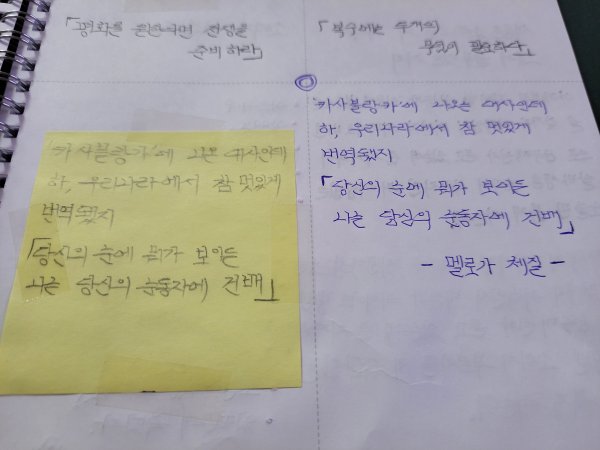 「평화를 원한다면 전쟁을
준비하라」
「복수에는 두개의
무덤이 필요하다」
카사블랑카에 나오는 대사인데
하, 우리나라에서 참 멋있게
번역됐지
「당신의 눈에 뭐가 보이든
나는 당신의 눈동자에 건배」
카사블랑카에 나온 대사인데
하, 우리나라에서 참 멋있게
번역됐지
「당신의 눈에 뭐가 보이든
나는 당신의 눈동자에 건배」
- 멜로가 체질 -